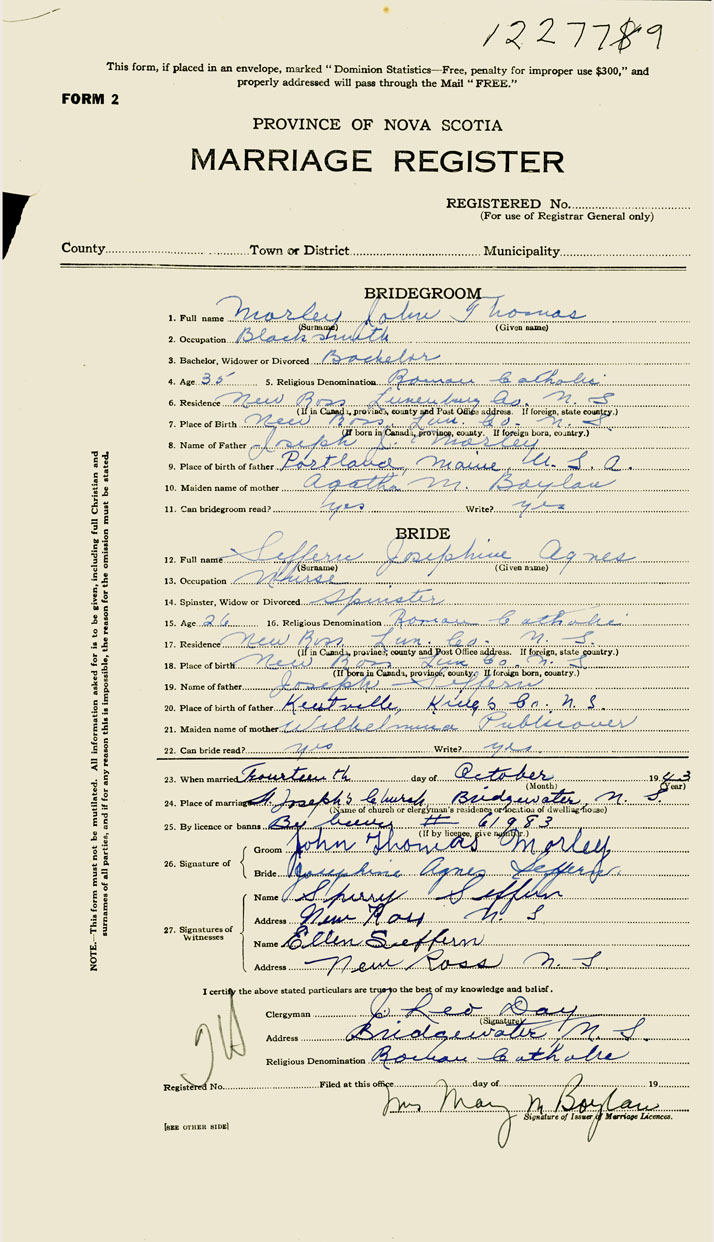 1227789
This form, if placed in an envelope, marked "Dominion Statistics—Free, penalty for improper use $300," and
properly addressed will pass through the Mail "FREE."
FORM 2
PROVINCE OF NOVA SCOTIA
MARRIAGE REGISTER
REGISTERED No.
(For use of Registrar General only)
County Town or District Municipality
BRIDEGROOM
1. Full name Morley John Thomas
(Surname) (Given name)
2. Occupation Blacksmith
3. Bachelor, Widower or Divorced Bachelor
4. Age 35 5. Religious Denomination Roman Catholic
6. Residence New Ross, Lunenburg Co. N. S
(If in Canada, province, county and Post Office address. If foreign, state country.)
7. Place of Birth New Ross, Lun. Co. N. S.
(If born in Canada, province, county. If foreign born, country.)
8. Name of Father Joseph J. Morley
9. Place of birth of father Portland, Maine, U. S. A.
10. Maiden name of mother Agatha M. Boylan
11. Can bridegroom read? yes Write? yes
BRIDE
12. Full name Seffern Josephine Agnes
(Surname) (Given name)
13. Occupation Nurse
14. Spinster, Widow or Divorced Spinster
15. Age 26 16. Religious Denomination Roman Catholic
17. Residence New Ross, Lun. Co. N. S.
(If in Canada, province, county and Post Office address. If foreign, state country.)
18. Place of birth New Ross Lun Co. N. S
(If born in Canada, province, county. If foreign born, country.)
19. Name of father Joseph Seffern
20. Place of birth of father Kentville, King's Co. N. S.
21. Maiden name of mother Wilhelmina Publicover
22. Can bride read? yes Write? yes.
23. When married Fourteenth day of October 1943
(Month) (Year)
24. Place of marriage St Joseph's Church Bridgewater, N. S.
(Name of church or clergyman's residence or location of dwelling-house)
25. By licence or banns By licence # 61983
(If by licence, give number.)
26. Signature of Groom John Thomas Morley
Bride Josephine Agnes Seffern
27. Signatures of Witnesses Name Sperry Seffern
Address New Ross N. S
Name Ellen Seffern
Address New Ross N. S.
I certify the above stated particulars are true to the best of my knowledge and belief.
Clergyman J. Leo Day
(Signature)
Address Bridgewater, N. S.
Religious Denomination Roman Catholic
Registered No. Filed at this office day of 19
Mrs Mary M Boylan
Signature of Issuer of Marriage Licences.
[SEE OTHER SIDE]
NOTE.—This form must not be mutilated. All information asked for is to be given, including full Christian and
surnames of all parties, and if for any reason this is impossible, the reason for the omission must be stated.